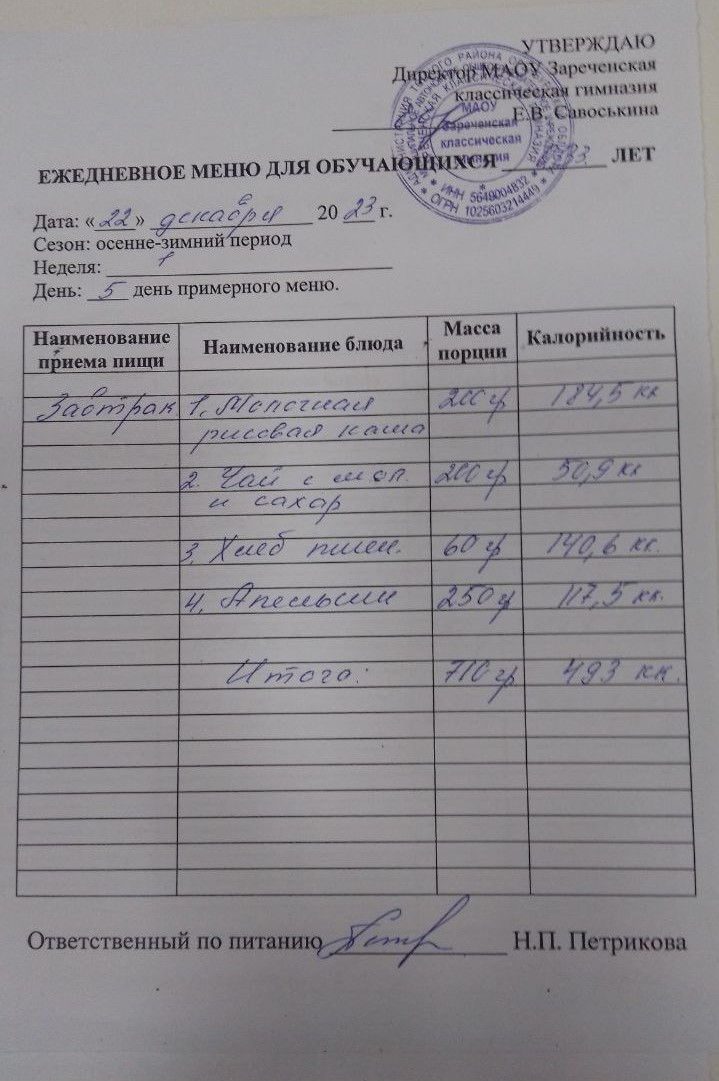 УТВЕРЖДАЮ
Директор МАОУ Зареченская
классическая гимназия
Е.В. Савоськина
МАОУ
Зареченская
классическая
гимназия
* ИНН 5649004832 *
* ОГРН 1025603214449 *
ЕЖЕДНЕВНОЕ МЕНЮ ДЛЯ ОБУЧАЮЩИХСЯ ЛЕТ
Дата: «22» декабря 2023 г.
Сезон: осенне-зимний период
Неделя: 1
День: 5 день примерного меню.
Наименование приема пищи Наименование блюда Масса порции Калорийность
Завтрак 1. Молочная 200 гр 184,5 кк
рисовая каша
2. Чай с мол. 200 гр 50,9 кк
и сахар
3. Хлеб пшен. 60 гр 140,6 кк.
4. Апельсин 250 гр 117,5 кк.
Итого: 710 гр 493 кк.
Ответственный по питанию Н.П. Петрикова